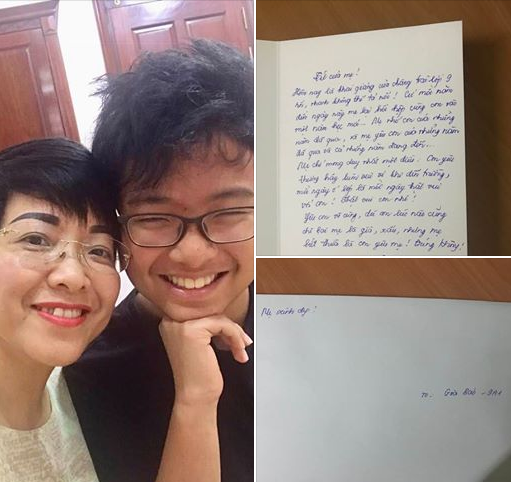 Tết của mẹ!
Hôm nay là khai giảng của chàng trai lớp 9
rồi, nhanh không thể tả nổi! Cứ mỗi năm
đến ngày này mẹ lại hồi hộp cùng con vào
một năm học mới... Mẹ nhớ con của những
năm đã qua, và mẹ yêu con của những năm
đã qua và cả những năm đang đến...
Mẹ chỉ mong duy nhất một điều: Con yêu
thương hãy luôn vui vẻ khi đến trường,
mỗi ngày ở lớp là mỗi ngày thật vui
với con! Thật vui con nhé!
Yêu con vô cùng, dù con lúc nào cũng
chê bai mẹ là già, xấu, nhưng mẹ
biết thừa là con yêu mẹ! Đúng không!
Mẹ xinh đẹp!
To. Gia Bảo - 9A1